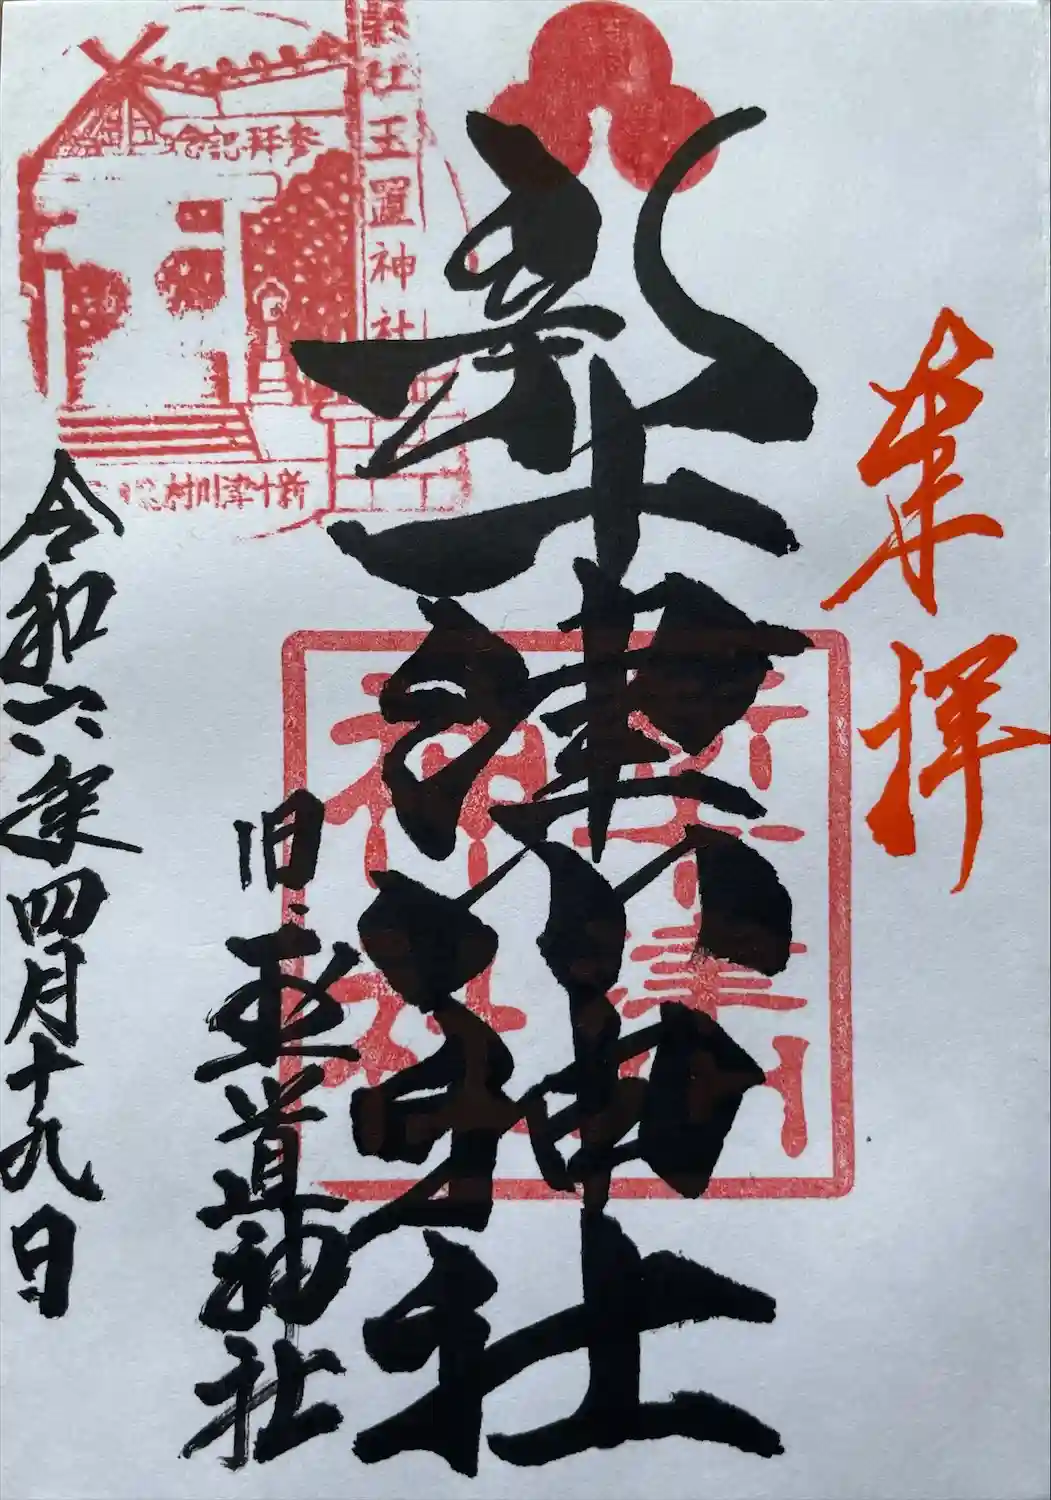 奉拝
新十津川神社
新十津川
神社
縣社玉置神社
参拝記念
新十津川村
旧、玉置神社
令和六歳四月十九日